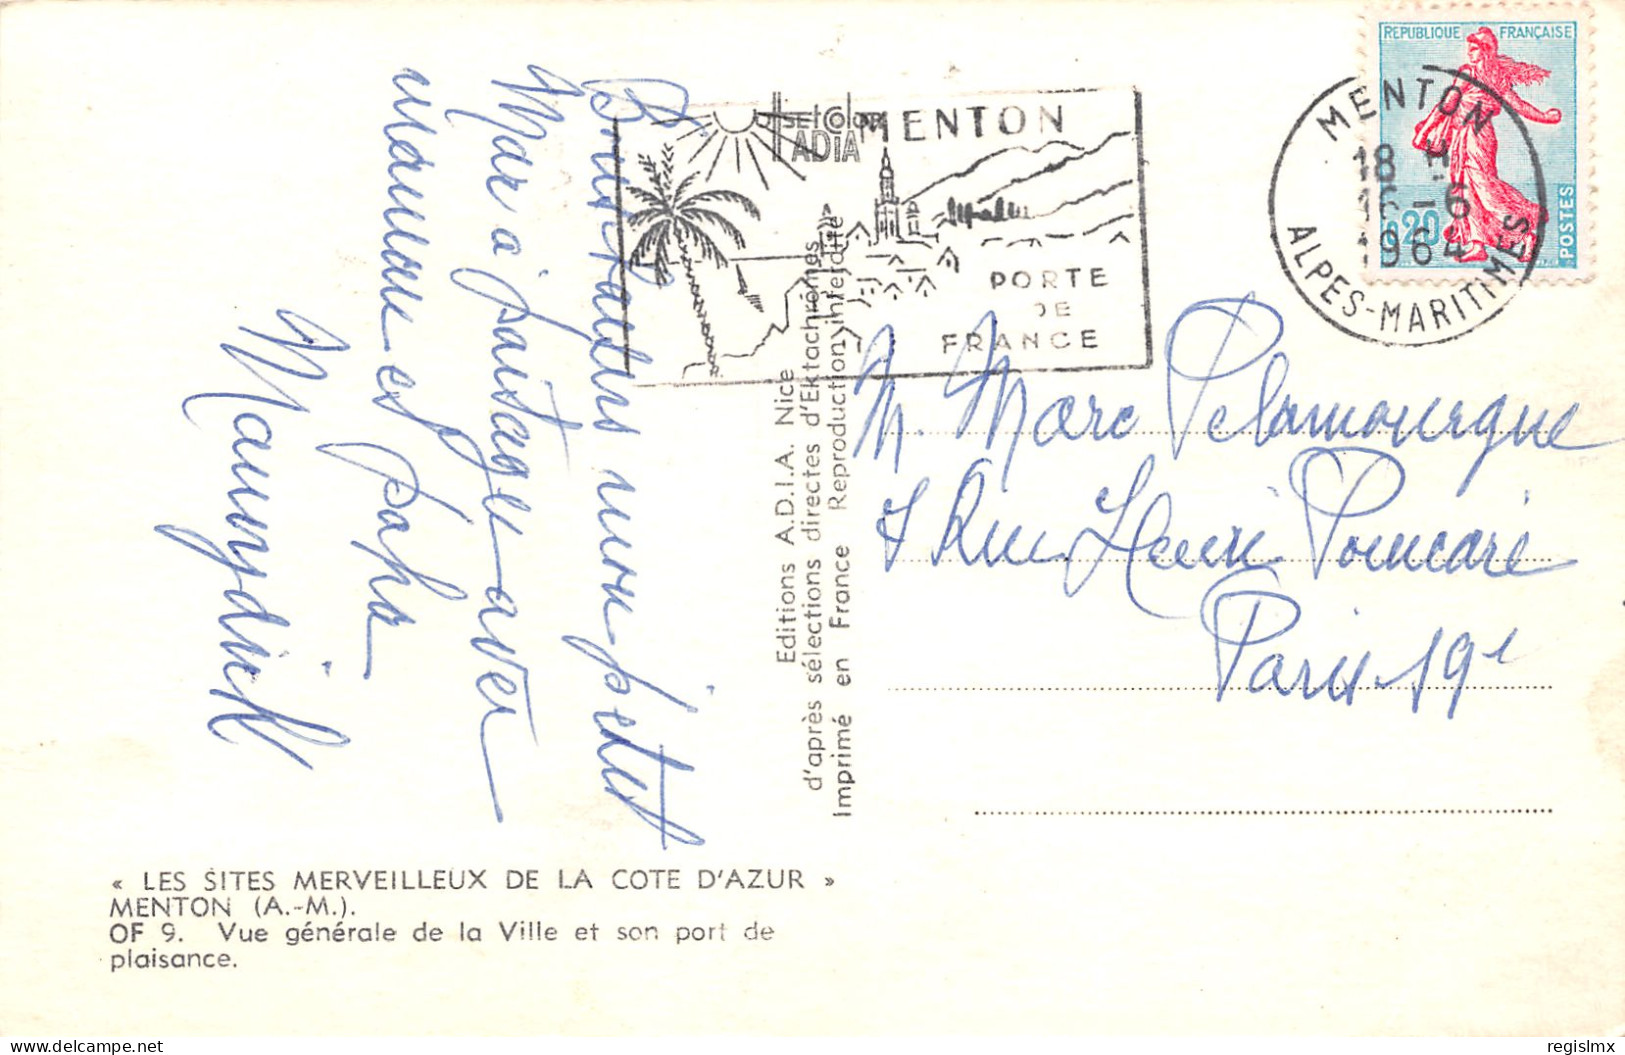 « LES SITES MERVEILLEUX DE LA COTE D'AZUR »
MENTON (A.-M.).
OF 9. Vue générale de la Ville et son port de
plaisance.
Bons baisers mon petit
Marc à partager avec
maman et papa
Editions A.D.I.A. Nice
d'après sélections directes d'Ektachromes
Imprimé en France Reproduction interdite
OffsetColor
ADIA
MENTON
PORTE
DE
FRANCE
MENTON
18 H
16-6
1964
ALPES-MARITIMES
REPUBLIQUE FRANÇAISE
0,20
POSTES
M. Marc Pelamourgue
7 Rue Henri Poincaré
Paris 19e
regislmx